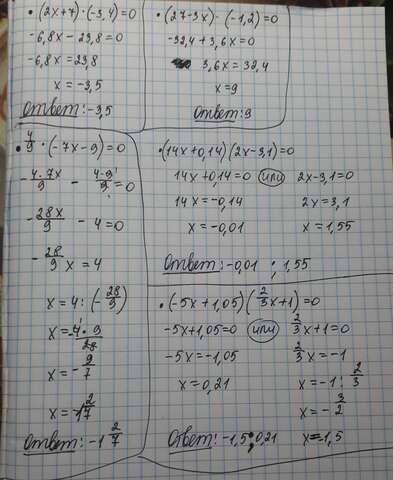 • (2x+7)·(-3,4)=0
-6,8x-23,8=0
-6,8x=23,8
x=-3,5
Ответ: -3,5
• (27-3x)·(-1,2)=0
-32,4+3,6x=0
3,6x=32,4
x=9
Ответ: 9
• 4/9 · (-7x-9)=0
-4·7x/9 - 4·9/9=0
-28x/9 - 4=0
-28/9 x=4
x=4:(-28/9)
x=-4·9/28
x=-9/7
x=-1 2/7
Ответ: -1 2/7
• (14x+0,14)(2x-3,1)=0
14x+0,14=0 или 2x-3,1=0
14x=-0,14 2x=3,1
x=-0,01 x=1,55
Ответ: -0,01 ; 1,55
• (-5x+1,05)(2/3x+1)=0
-5x+1,05=0 или 2/3x+1=0
-5x=-1,05 2/3x=-1
x=0,21 x=-1:2/3
x=-3/2
x=-1,5
Ответ: -1,5; 0,21